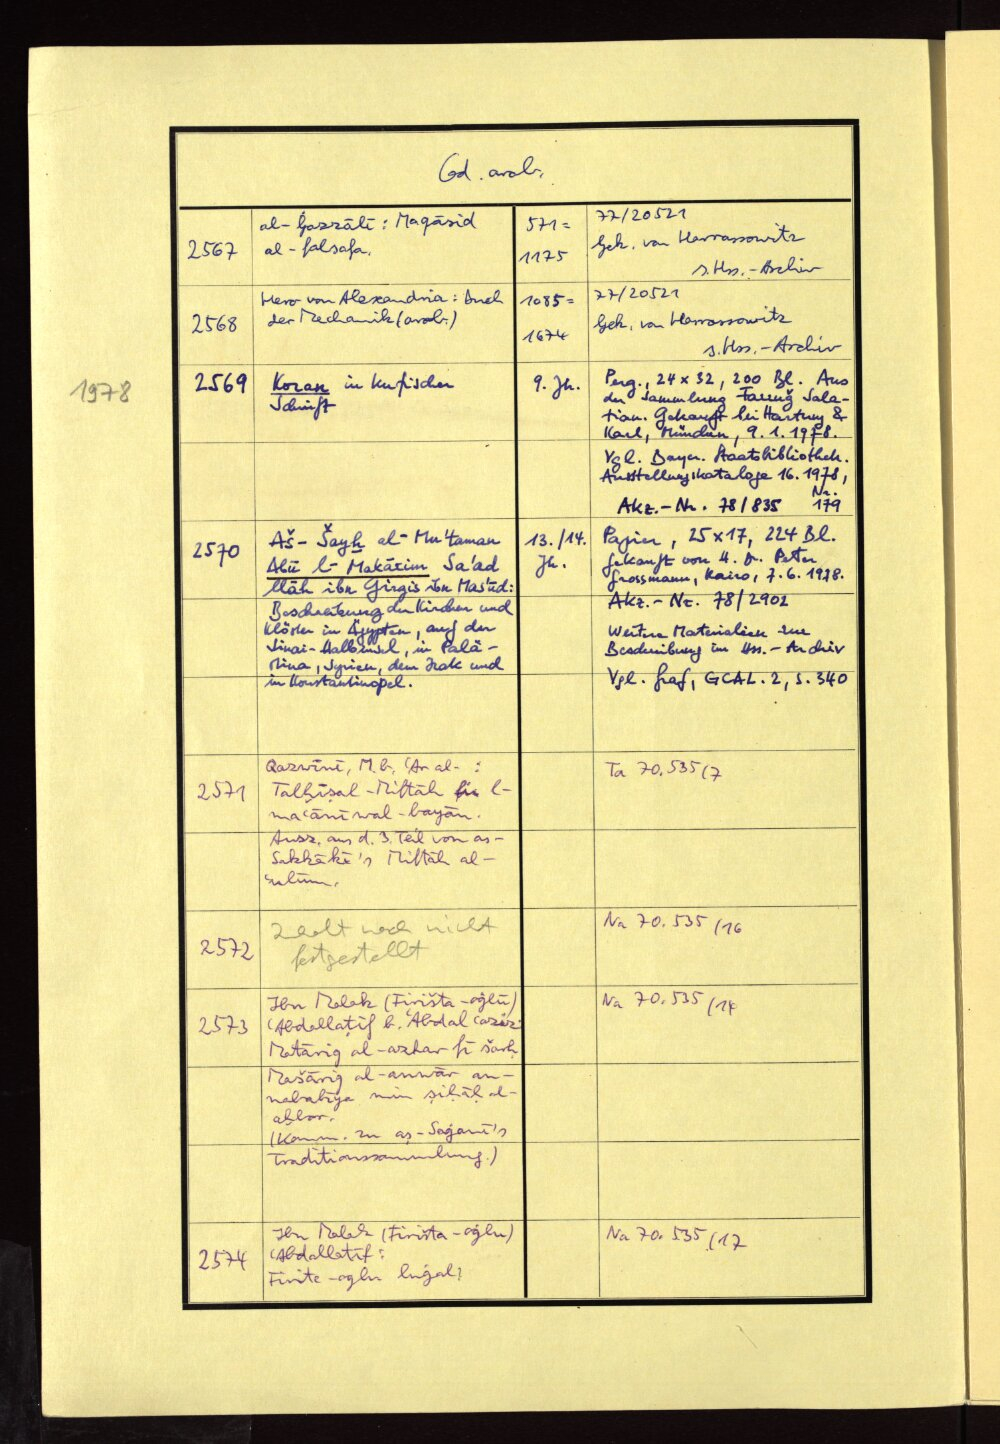 Cod. arab.
2567
al-Ġazzālī: Maqāṣid
al-falsafa.
571 =
1175
77/20521
Gek. von Harrassowitz
s. Hss.-Archiv
2568
Hero von Alexandria: Buch
der Mechanik (arab.)
1085 =
1674
77/20521
Gek. von Harrassowitz
s. Hss.-Archiv
1978
2569
Koran in kufischer
Schrift
9. Jh.
Perg., 24 x 32, 200 Bl. Aus
der Sammlung Farruğ Sala-
tian. Gekauft bei Hartung &
Karl, München, 9.1.1978.
Vgl. Bayer. Staatsbibliothek.
Ausstellungskataloge 16. 1978,
Nr.
Akz.-Nr. 78/835 179
2570
Aš-Šayḫ al-Mu'taman
Abū l-Makārim Sa'ad
llāh ibn Girgis ibn Mas'ūd:
Beschreibung der Kirchen und
Klöster in Ägypten, auf der
Sinai-Halbinsel, in Palä-
stina, Syrien, dem Irak und
in Konstantinopel.
13./14.
Jh.
Papier, 25 x 17, 224 Bl.
Gekauft von H. Dr. Peter
Grossmann, Kairo, 7.6.1978.
Akz.-Nr. 78/2902
Weitere Materialien zur
Beschreibung im Hss.-Archiv
Vgl. Graf, GCAL. 2, S. 340
2571
Qazwīnī, M. b. ʿAr. al- :
Talḫīṣ al-Miftāḥ fī l-
maʿānī wal-bayān.
Ausz. aus d. 3. Teil von as-
Sakkākī's Miftāḥ al-
ʿulūm.
Ta 70.535/7
2572
Inhalt noch nicht
festgestellt
Na 70.535/16
2573
Ibn Malak (Firišta-oġlū)
ʿAbdallaṭīf b. ʿAbdalʿazīz:
Mabāriq al-azhar fī šarḥ
Mašāriq al-anwār an-
nabawīya min ṣiḥāḥ al-
aḫbār.
(Komm. zu aṣ-Ṣaġānī's
Traditionssammlung.)
Na 70.535/14
2574
Ibn Malak (Firišta-oġlu)
ʿAbdallatīf:
Firište-oglu luġatı
Na 70.535/17